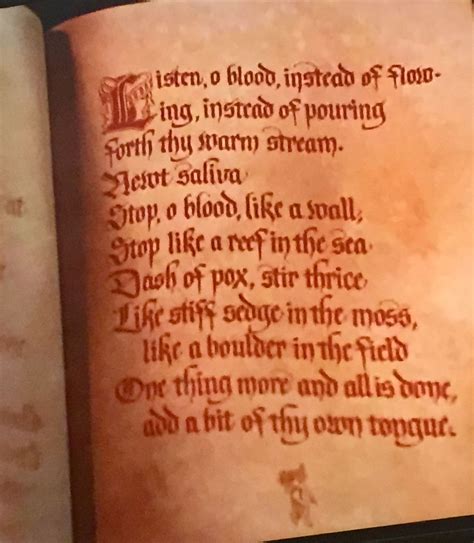 Listen, o blood, instead of flow-
ing, instead of pouring
forth thy warm stream.
Newt saliva
Stop, o blood, like a wall,
Stop like a reef in the sea
Dash of pox, stir thrice
Like stiff sedge in the moss,
like a boulder in the field
One thing more and all is done,
add a bit of thy own tongue.